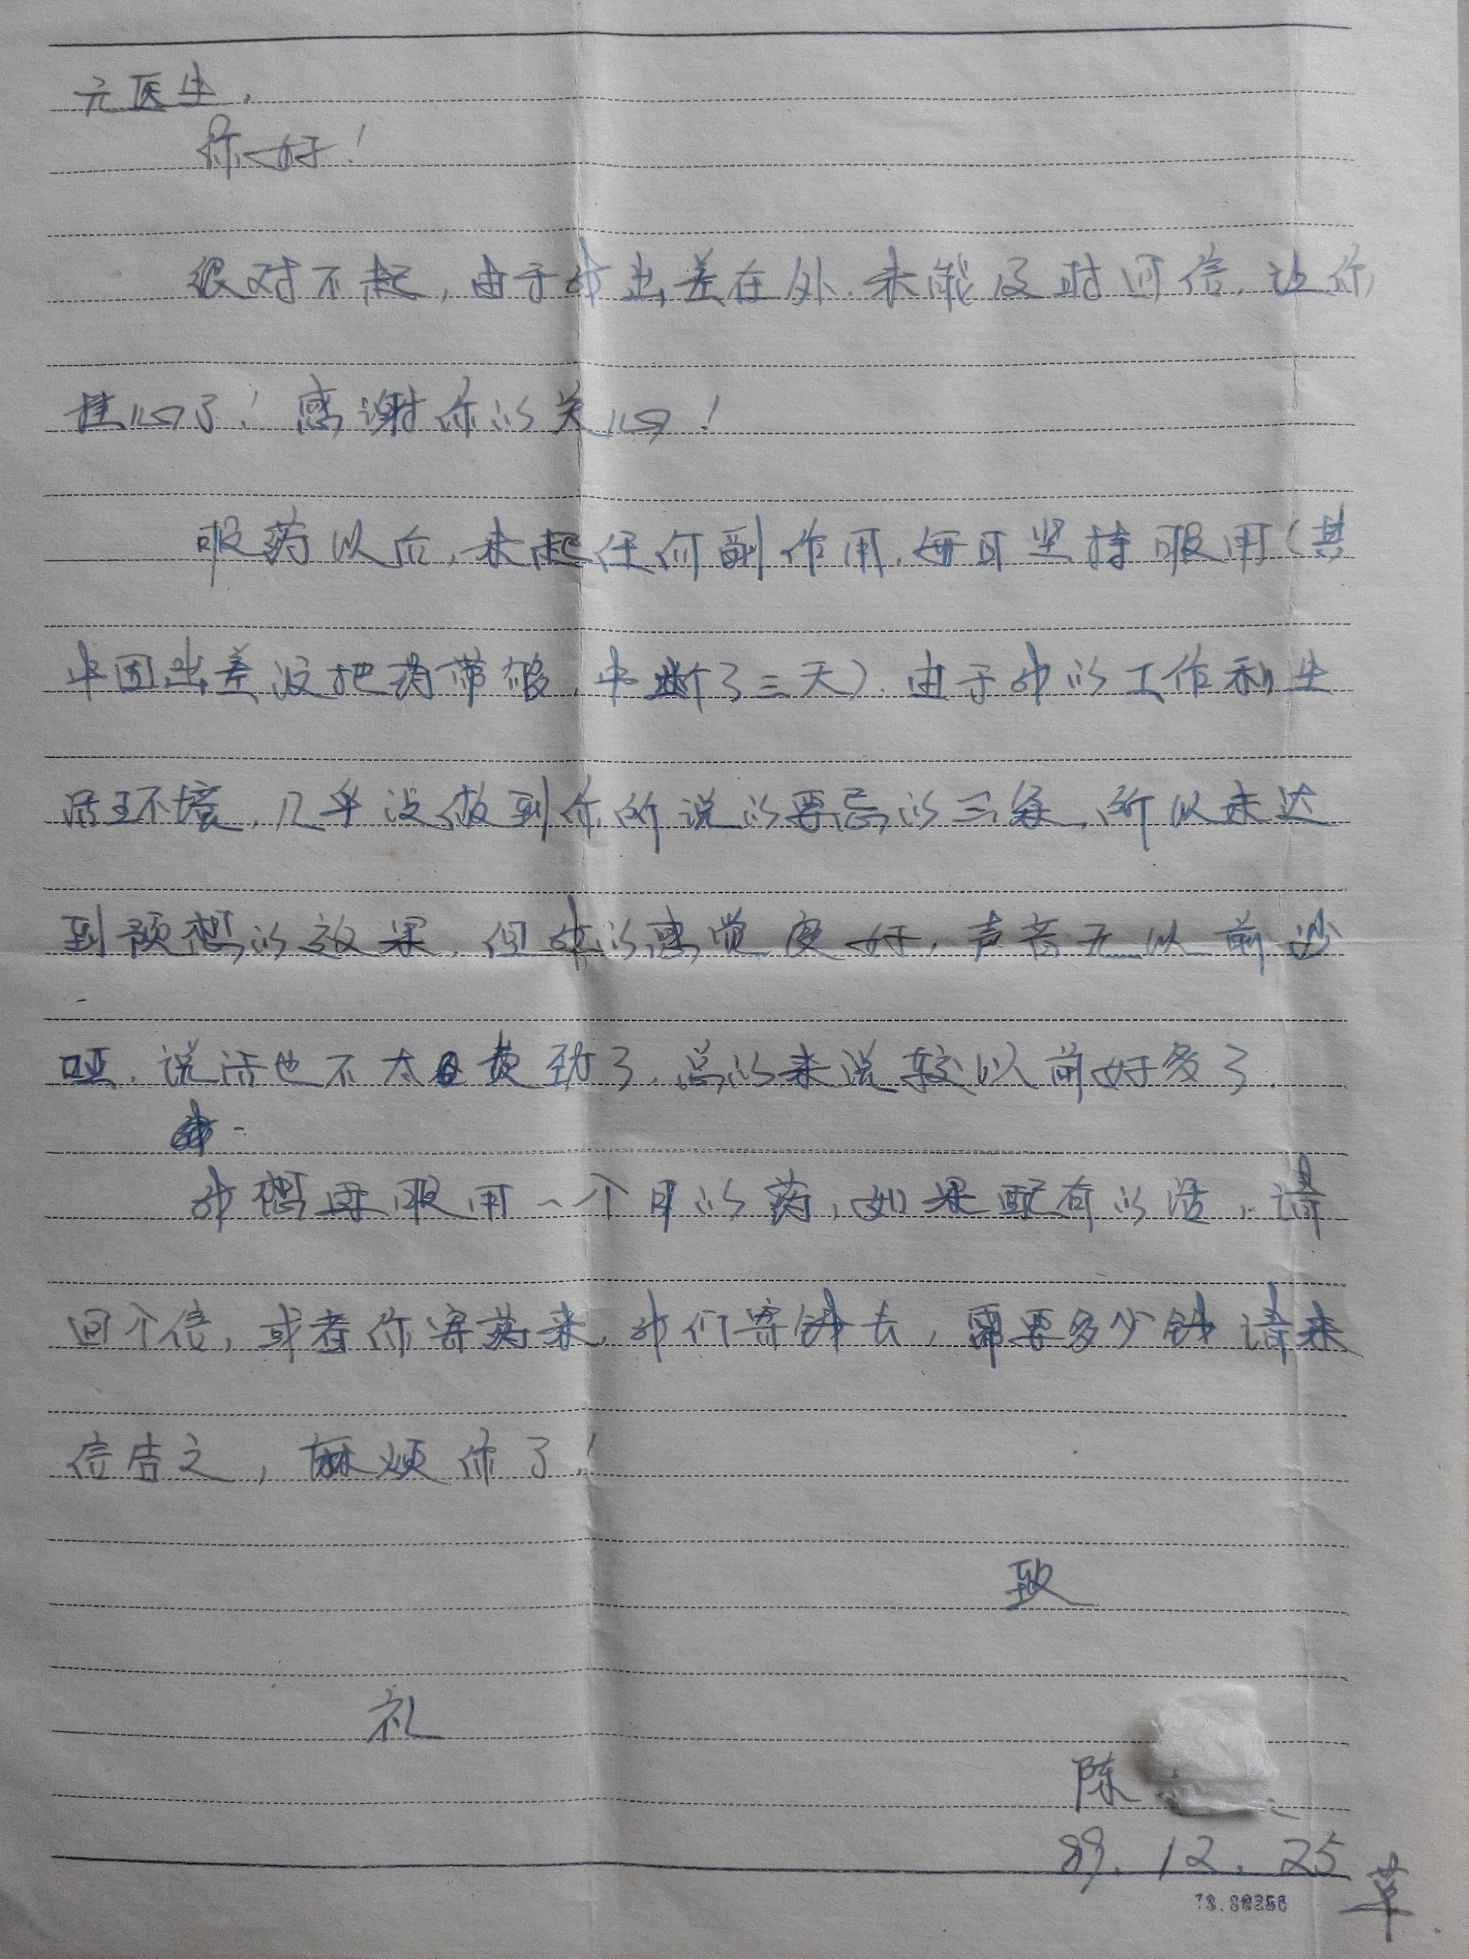 元医生，
你好！
很对不起，由于我出差在外，未能及时回信，让你
挂心了！感谢你的关心！
服药以后，未起任何副作用，每日坚持服用（其
中因出差没把药带够，中断了三天）。由于我的工作和生
活环境，几乎没做到你所说的要忌的三条，所以未达
到预想的效果，但我的感觉良好，声音无以前沙
哑，说话也不太费劲了，总的来说较以前好多了。
我想再服用一个月的药，如果配有的话，请
回个信，或者你寄药来，我们寄钱去，需要多少钱请来
信告之，麻烦你了！
致
礼
陈
89.12.25
草